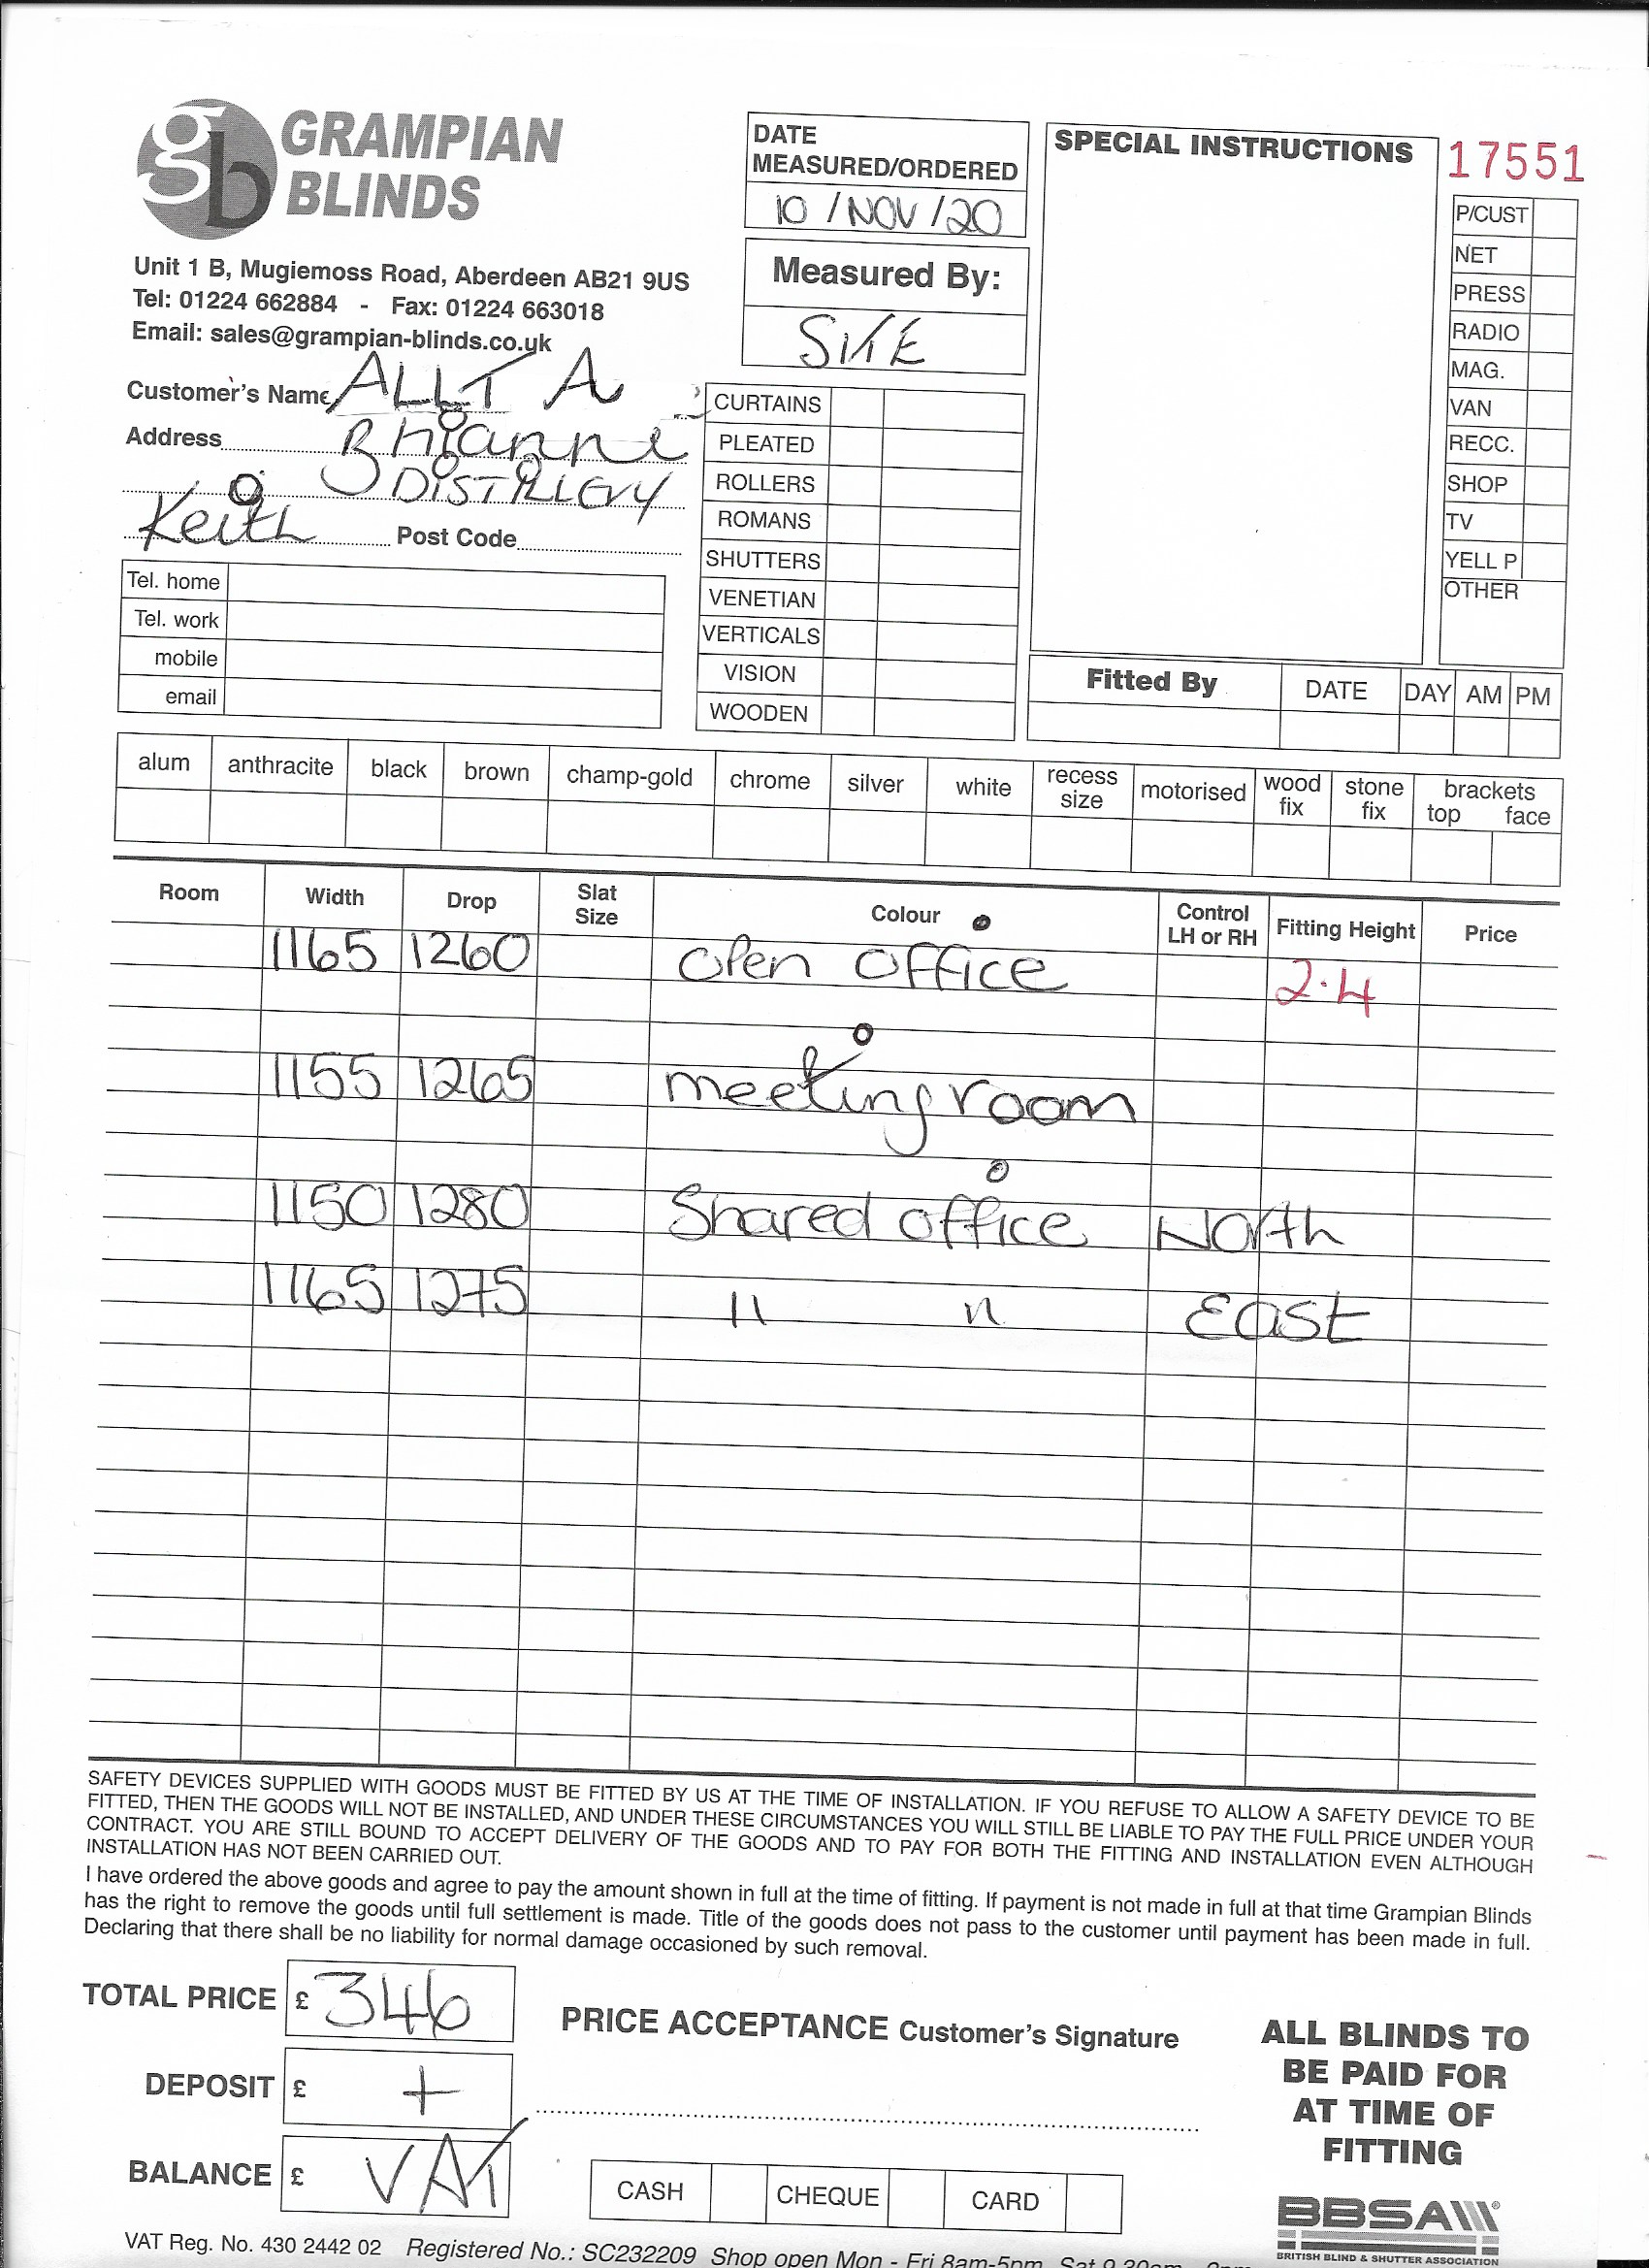 gb GRAMPIAN
BLINDS
Unit 1 B, Mugiemoss Road, Aberdeen AB21 9US
Tel: 01224 662884 - Fax: 01224 663018
Email: sales@grampian-blinds.co.uk
Customer's Name ALLT A
Address Bhianne
DISTILLERY
Keith Post Code
Tel. home
Tel. work
mobile
email
DATE
MEASURED/ORDERED
10 / NOV / 20
Measured By:
SITE
CURTAINS
PLEATED
ROLLERS
ROMANS
SHUTTERS
VENETIAN
VERTICALS
VISION
WOODEN
SPECIAL INSTRUCTIONS
17551
P/CUST
NET
PRESS
RADIO
MAG.
VAN
RECC.
SHOP
TV
YELL P
OTHER
Fitted By DATE DAY AM PM
alum anthracite black brown champ-gold chrome silver white recess size motorised wood fix stone fix brackets top face
Room Width Drop Slat Size Colour Control LH or RH Fitting Height Price
1165 1260 Open Office 2.4
1155 1265 meeting room
1150 1280 Shared office North
1165 1275 " " East
SAFETY DEVICES SUPPLIED WITH GOODS MUST BE FITTED BY US AT THE TIME OF INSTALLATION. IF YOU REFUSE TO ALLOW A SAFETY DEVICE TO BE
FITTED, THEN THE GOODS WILL NOT BE INSTALLED, AND UNDER THESE CIRCUMSTANCES YOU WILL STILL BE LIABLE TO PAY THE FULL PRICE UNDER YOUR
CONTRACT. YOU ARE STILL BOUND TO ACCEPT DELIVERY OF THE GOODS AND TO PAY FOR BOTH THE FITTING AND INSTALLATION EVEN ALTHOUGH
INSTALLATION HAS NOT BEEN CARRIED OUT.
I have ordered the above goods and agree to pay the amount shown in full at the time of fitting. If payment is not made in full at that time Grampian Blinds
has the right to remove the goods until full settlement is made. Title of the goods does not pass to the customer until payment has been made in full.
Declaring that there shall be no liability for normal damage occasioned by such removal.
TOTAL PRICE £ 346
DEPOSIT £ +
BALANCE £ VAT
PRICE ACCEPTANCE Customer's Signature
CASH CHEQUE CARD
ALL BLINDS TO
BE PAID FOR
AT TIME OF
FITTING
BBSA
BRITISH BLIND & SHUTTER ASSOCIATION
VAT Reg. No. 430 2442 02 Registered No.: SC232209 Shop open Mon - Fri 8am-5pm Sat 9.30am